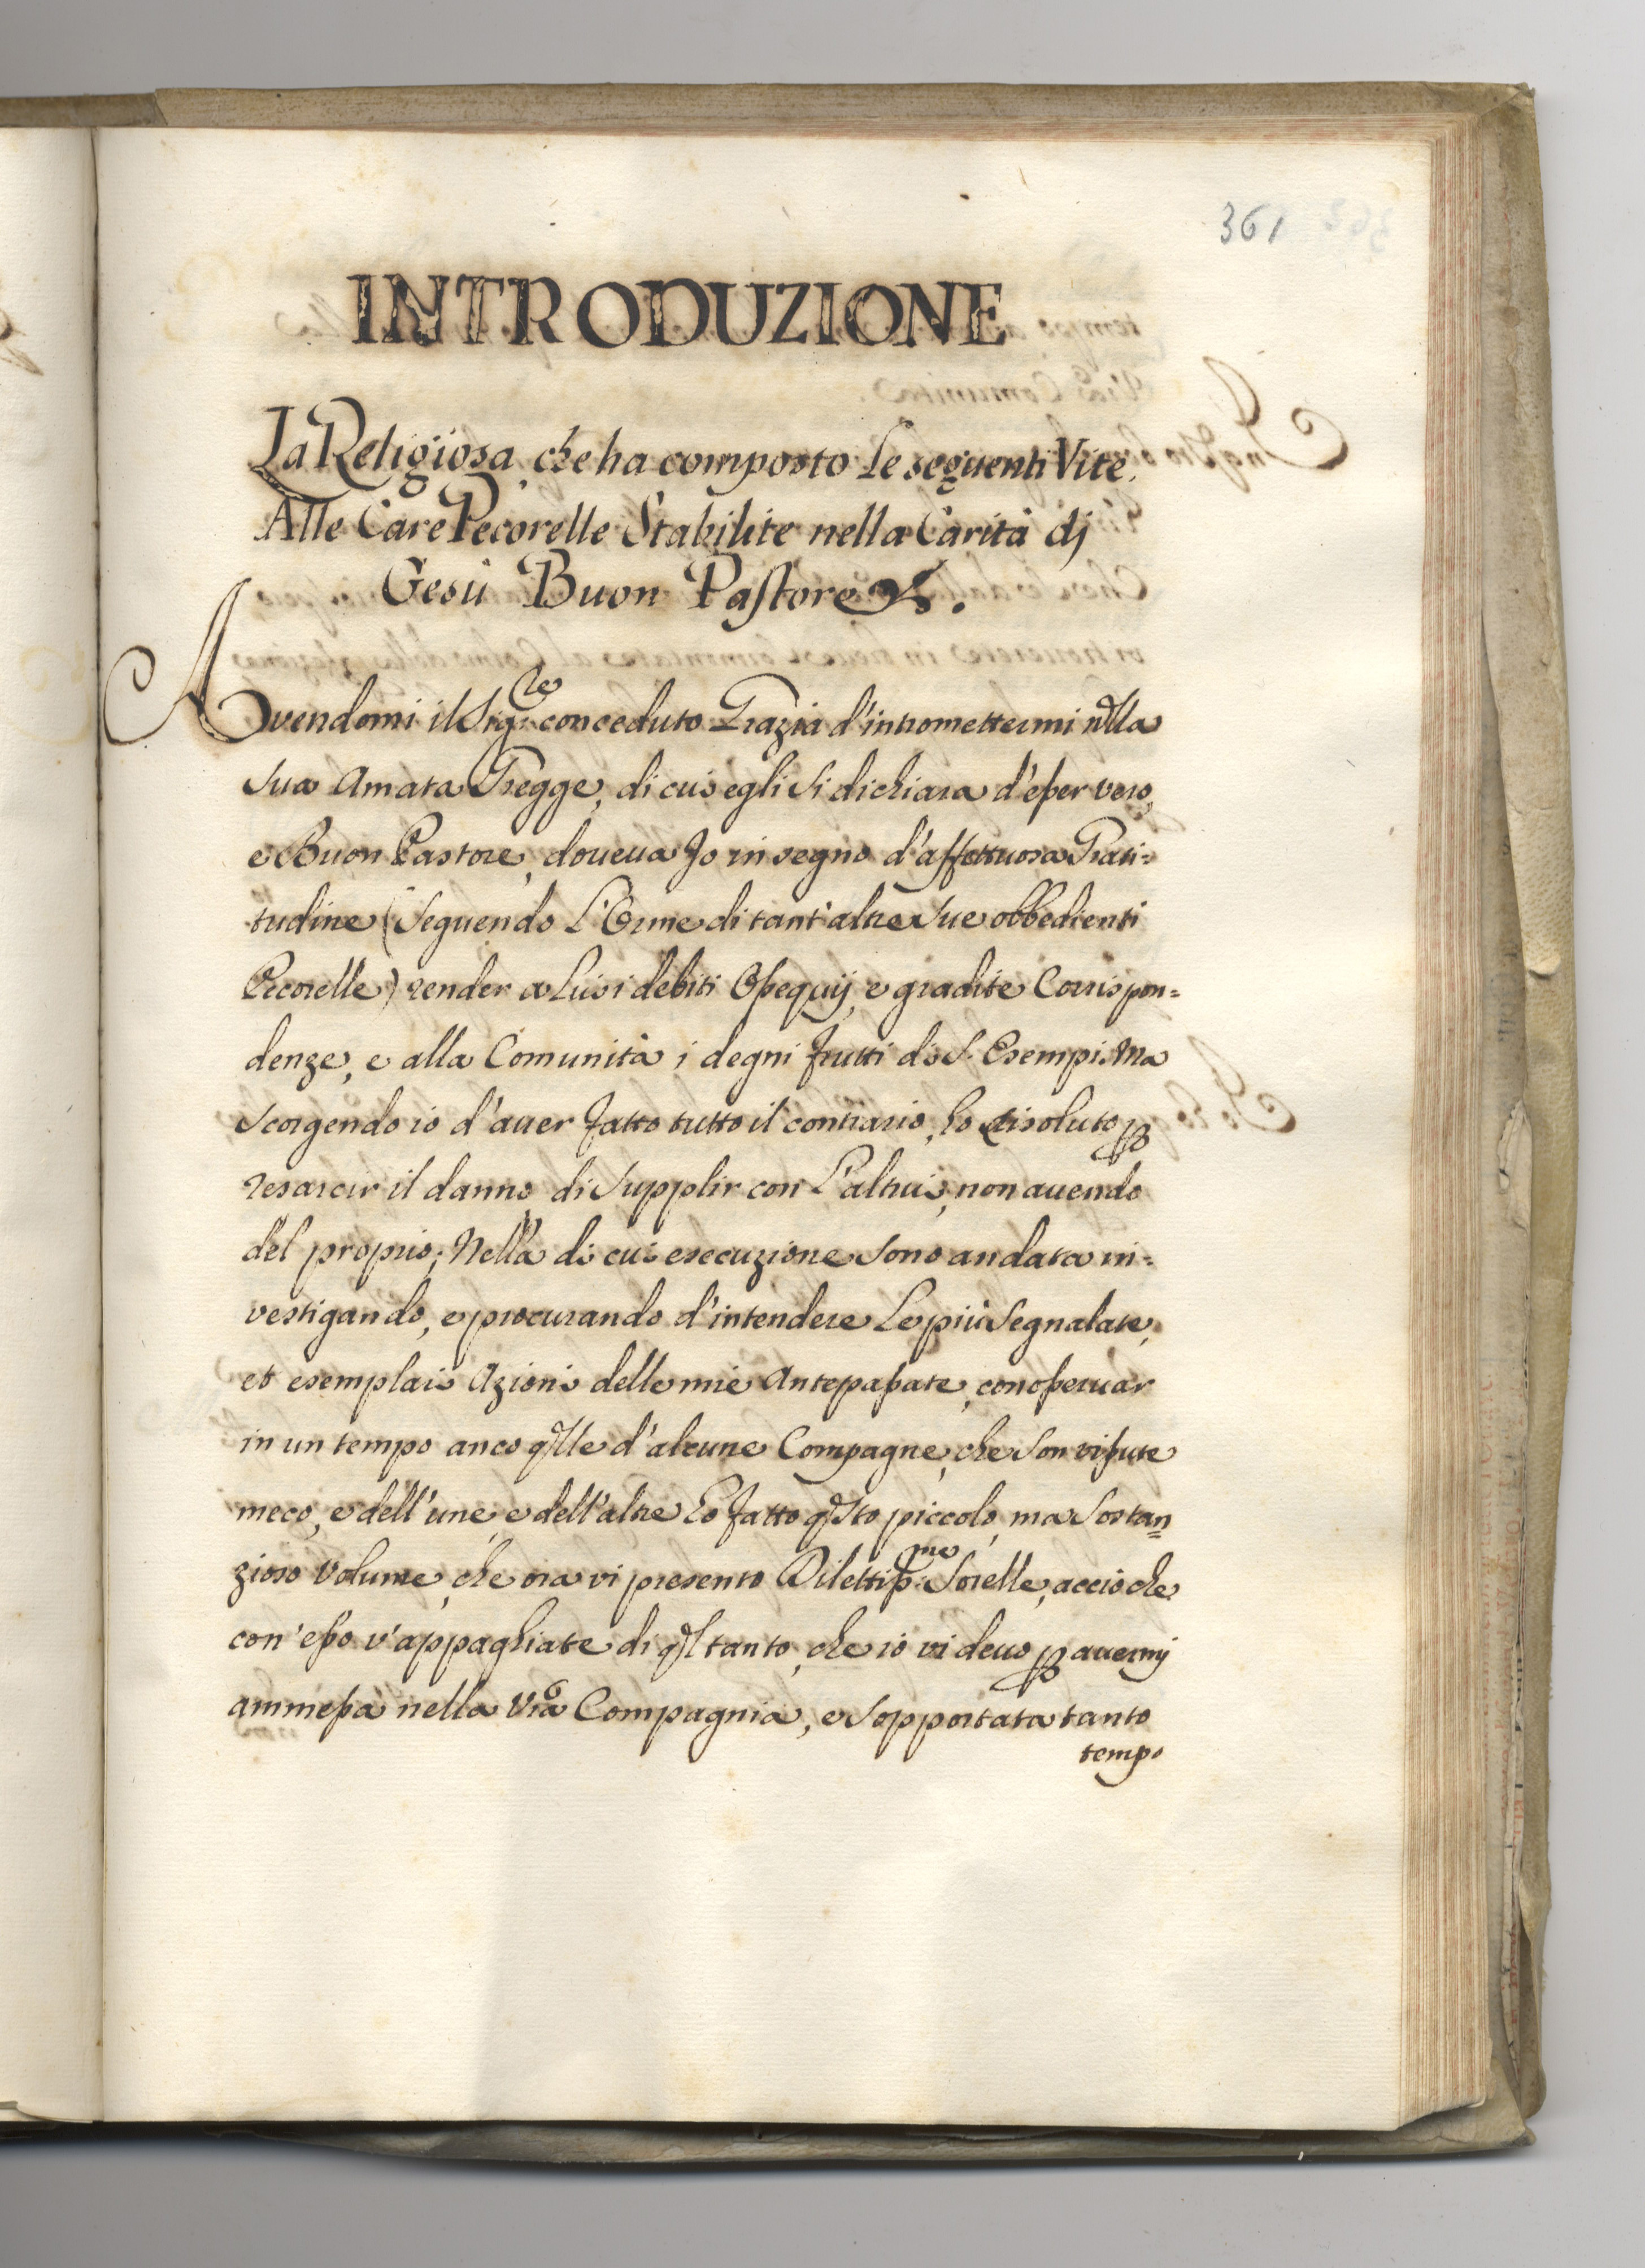 361
INTRODUZIONE
La Religiosa, che ha composto le seguenti Vite,
Alle Care Pecorelle Stabilite nella Carità dj
Gesù Buon Pastore &.
Avendomi il Sig:re conceduto Grazia d'intromettermi nlla
sua Amata Gregge, di cui egli si dichiara d'eßer vero,
e Buon Pastore, doueua Jo in segno d'affettuosa Grati=
tudine (seguendo l'Orme di tant'altre sue obbedienti
Pecorelle) render a Lui i debiti Oßequij, e gradite Corrispon=
denze, e alla Comunità i degni frutti di S. Esempi. Ma
scorgendo io d'auer fatto tutto il contrario, ho risoluto p
resarcir il danno di supplir con l'altrui, non auendo
del proprio; Nella di cui esecuzione sono andata in=
vestigando, e procurando d'intendere le più segnalate,
et esemplari Azioni delle mie Antepaßate, con oßeruar
in un tempo anco qlle d'alcune Compagne, che son vißute
meco, e dell'une, e dell'altre ho fatto qsto piccolo, ma sostan=
zioso Volume, che ora vi presento Dilettiß:me Sorelle, acciò che
con'eßo v'appaghiate di ql tanto, che io vi deuo p auermj
ammeßa nella Vra Compagnia, e sopportata tanto
tempo